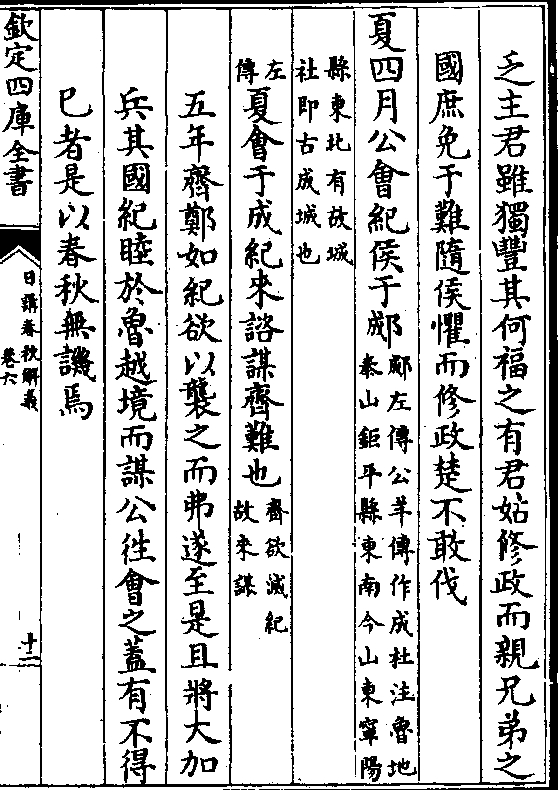 乏主君雖獨豐其何福之有君姑修政而親兄弟之
國庶免于難隨侯懼而修政楚不敢伐
夏四月公會紀侯于郕
郕左傳公羊傳作成杜注魯地
泰山鉅平縣東南今山東寧陽
縣東北有故城
社即古成城也
左
傳
夏會于成紀來諮謀齊難也
齊欲滅紀
故來謀
五年齊鄭如紀欲以襲之而弗遂至是且將大加
兵其國紀睦於魯越境而謀公徃會之蓋有不得
巳者是以春秋無譏焉
欽定四庫全書
日講春秋解義
卷六
十二